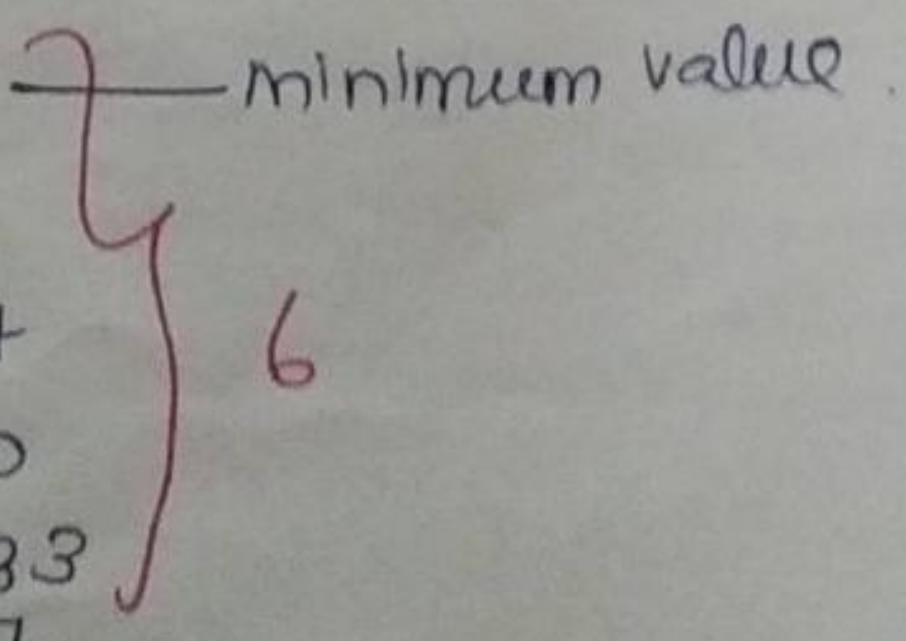 minimum value.
6
33